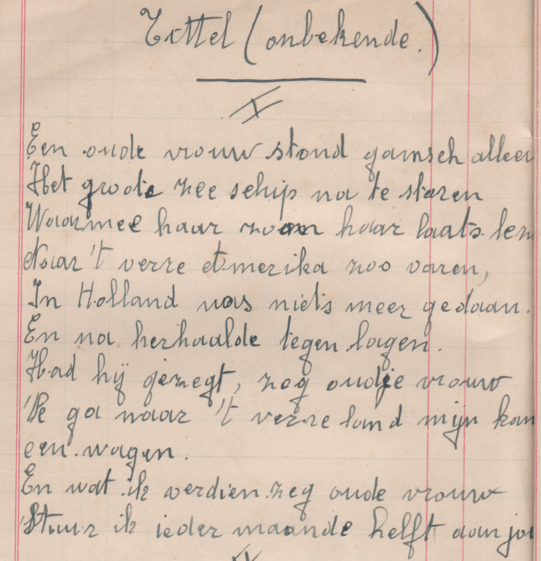 Tittel (onbekende.)
I
Een oude vrouw stond gansch alleen
Het groote zee schip na te staren
Waarmee haar zoon haar laats ten
Naar 't verre Amerika zoo varen,
In Holland was niets meer gedaan.
En na herhaalde tegen lagen.
Had hij gezegt, zeg oudje vrouw
'k ga naar 't verre land mijn kan
een wagen.
En wat ik verdien zeg oude vrouw
Stuur ik ieder maande helft aan jou